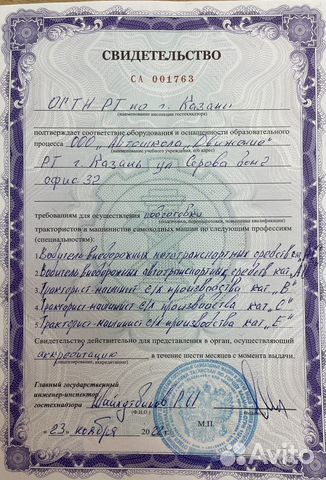 СВИДЕТЕЛЬСТВО
СА 001763
ОГТН РТ по г. Казани
(наименование инспекции гостехнадзора)
подтверждает соответствие оборудования и оснащенности образовательного
процесса ООО "Автошкола "Движение"
(наименование учебного учреждения, его адрес)
РТ г. Казань ул Серова дом
офис 32
требованиям для осуществления подготовки
(подготовки, переподготовки, повышения квалификации)
трактористов и машинистов самоходных машин по следующим профессиям
(специальностям):
Водители внедорожных мототранспортных средств кат
2. Водитель внедорожных автотранспортных средств кат.
3. Тракторист-машинист с/х производства кат "В"
4. Тракторист-машинист с/х производства кат. "С"
5. Тракторист-машинист с/х производства кат. "Е"
Свидетельство действительно для представления в орган, осуществляющий
аккредитацию в течение шести месяцев с момента выдачи.
(лицензирование, аккредитацию)
Главный государственный
инженер-инспектор
гостехнадзора
(Ф.И.О.)
М.П.
«23 ноября 20
Avito